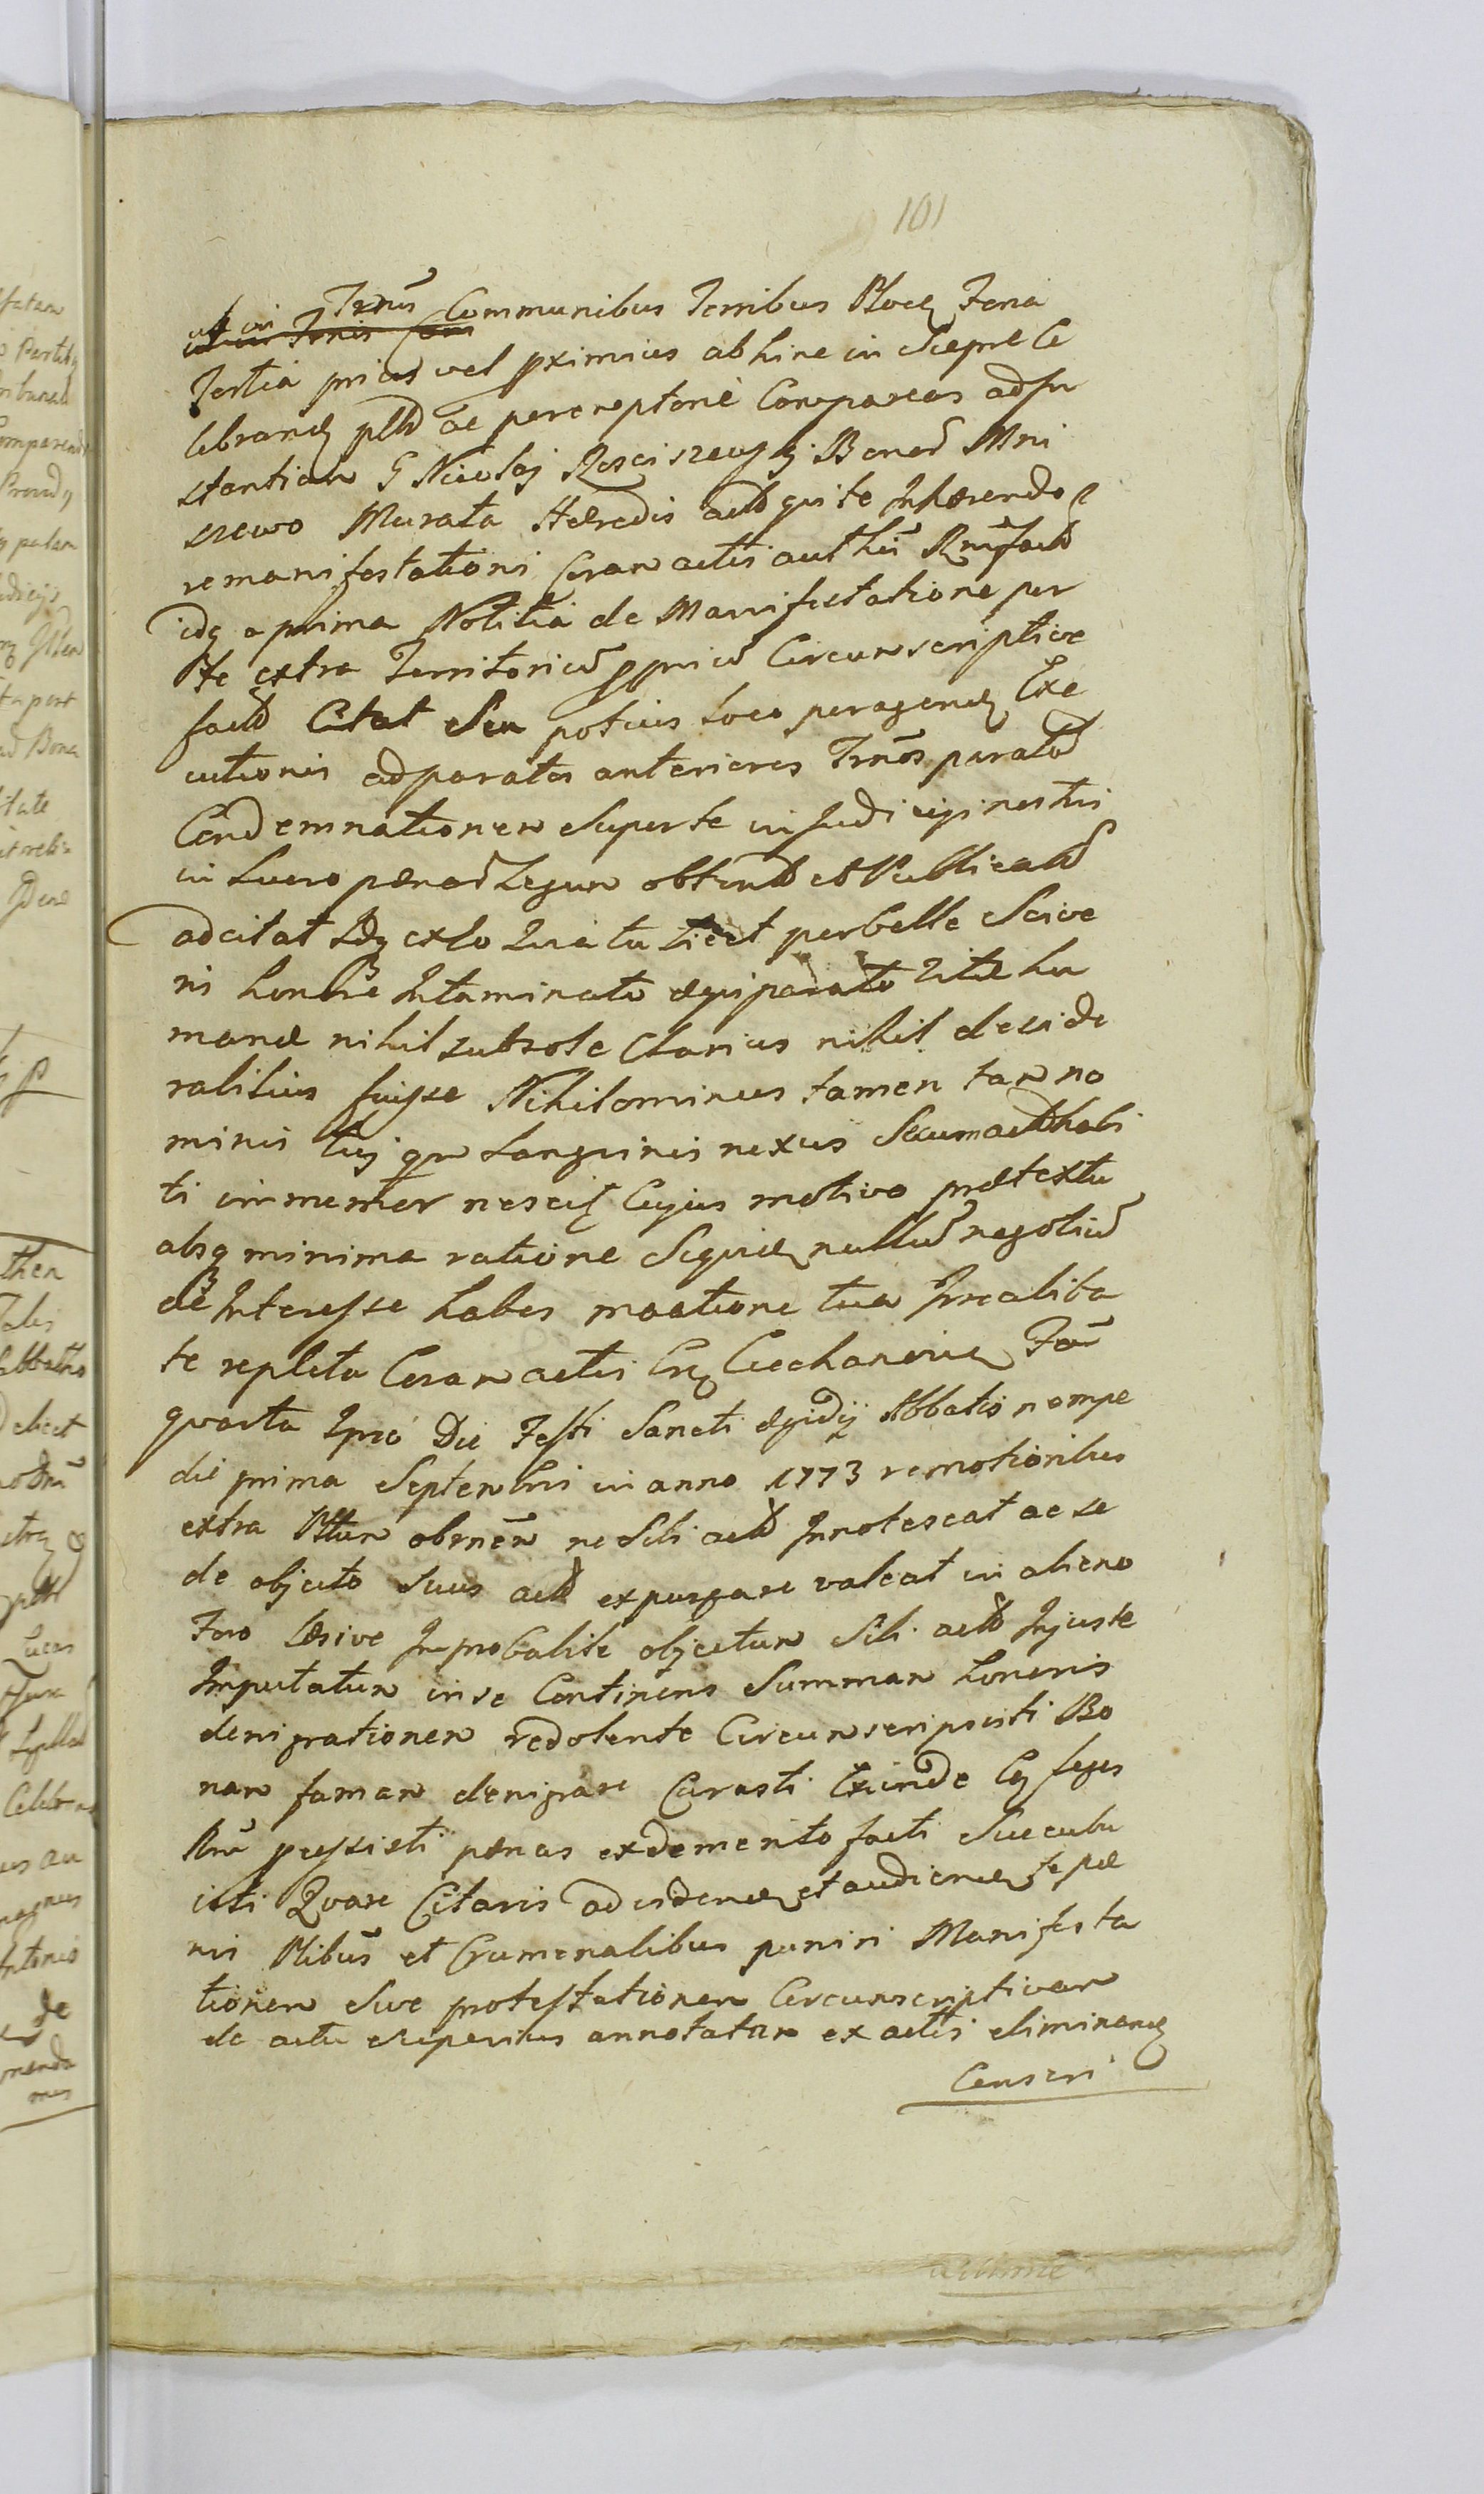 101
ut in Trnis Communibus Terribus Plocen Feria
Tertia prius vel pximius abhinc in Sierpc Ce
lebrand pltr ac peremptorie Compareas ad In
stantiam G Nicolaj Rosciszewskj Bonor Mni
szewo Murata Hæredis actb qui te Inhærendo
remanifestationi Coram actis authen factb
idq a prima Notitia de Manifestatione per
te extra Territoriu ppriu Circumscriptive
facta Citat Seu potius loco peragend Exe
cutionis ad paratas anteriores Trnos parata
Condemnationem Super te in Judicijs nostris
in Lucro pænar Legum obtent et Publicata
adcitat Idq exlo Quia tu licet perbelle Scive
ris honore Intaminato æquiparato Vitæ hu
manæ nihil sub sole Clarius nihil deside
rabilius fuisse Nihilominus tamen tam no
minis tuj qm Sanguinis nexus Secum actb habi
ti immemor nescit Cujus motivo prætextu
absq minima ratione Siquid nullu negotiu
de Interesse habes mactione tua Irrealita
te repleta Coram actis Cas Ciechanovien Fer
quarta Ipso Die Festi Sancti Ægidij Abbatis nempe
die prima Septembris in anno 1773 remotioribus
extra Pltum obmen ne Sibi actb Innotescat ac se
de objecto Suus actb expurgare valeat in alieno
Foro læsive Improbabile objectum Sibi actb Injuste
Imputatum in se Continens Summam honoris
denigrationem redolente Circumscripsisti Bo
nam famam denigrare Curasti Exinde leges
Rni pressisti pænas ex demerito facti Succubu
isti Quare Citaris ad vidend et audiend te pæ
nis Plibus et Crumenalibus puniri Manifesta
tionem Sive protestationem Circumscriptivam
de actu Superius annotatam ex actis eliminand
Censeri